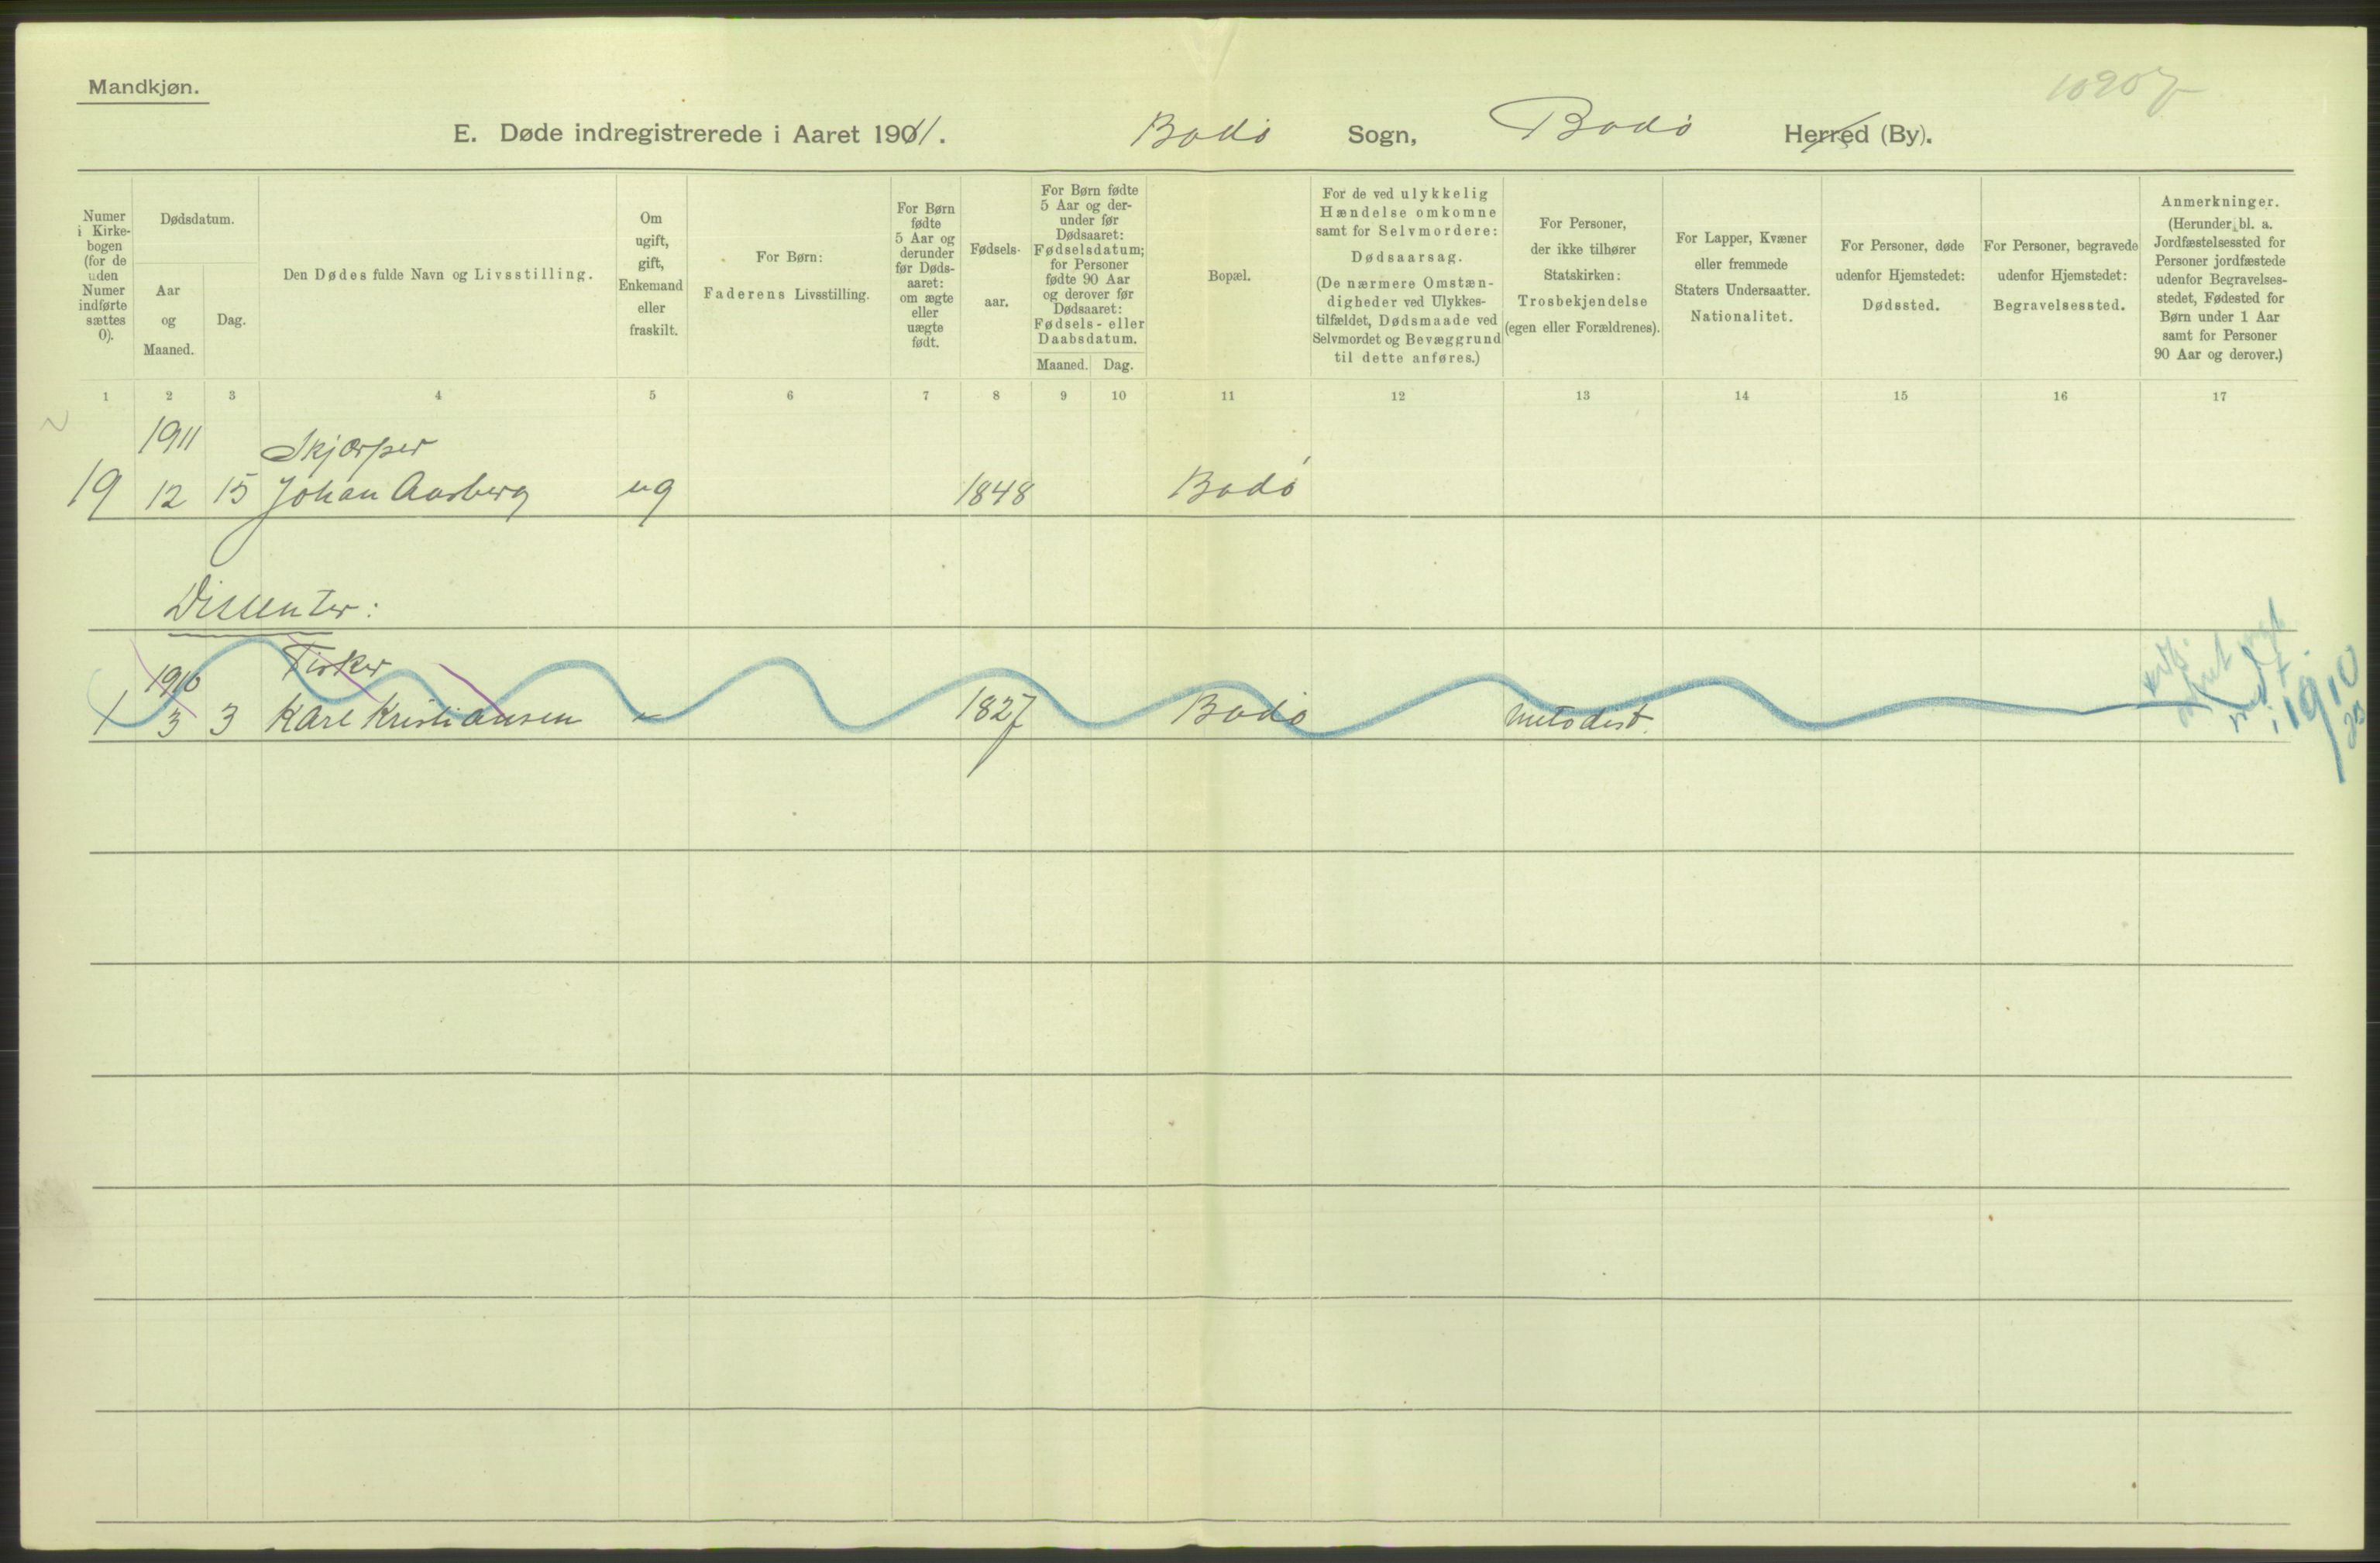 Mandkjøn.
10907
E. Døde indregistrerede i Aaret 1911. Bodø Sogn, Bodø Herred (By).
Numer
i Kirke-
bogen
(for de
uden
Numer
indførte
sættes
0).
Dødsdatum.
Aar
og
Maaned.
Dag.
Den Dødes fulde Navn og Livsstilling.
Om
ugift,
gift,
Enkemand
eller
fraskilt.
For Børn:
Faderens Livsstilling.
For Børn
fødte
5 Aar og
derunder
før Døds-
aaret:
om ægte
eller
uægte
født.
Fødsels-
aar.
For Børn fødte
5 Aar og der-
under før
Dødsaaret:
Fødselsdatum;
for Personer
fødte 90 Aar
og derover før
Dødsaaret:
Fødsels- eller
Daabsdatum.
Maaned. Dag.
Bopæl.
For de ved ulykkelig
Hændelse omkomne
samt for Selvmordere:
Dødsaarsag.
(De nærmere Omstæn-
digheder ved Ulykkes-
tilfældet, Dødsmaade ved
Selvmordet og Bevæggrund
til dette anføres.)
For Personer,
der ikke tilhører
Statskirken:
Trosbekjendelse
(egen eller Forældrenes).
For Lapper, Kvæner
eller fremmede
Staters Undersaatter.
Nationalitet.
For Personer, døde
udenfor Hjemstedet:
Dødssted.
For Personer, begravede
udenfor Hjemstedet:
Begravelsessted.
Anmerkninger.
(Herunder bl. a.
Jordfæstelsessted for
Personer jordfæstede
udenfor Begravelses-
stedet, Fødested for
Børn under 1 Aar
samt for Personer
90 Aar og derover.)
1 2 3 4 5 6 7 8 9 10 11 12 13 14 15 16 17
1911 Skjærper
19 12 15 Johan Aasberg ug 1848 Bodø
Dissenter:
1910 Fisker
1 3 3 Karl Kristiansen 1827 Bodø Metodist.
i 1910